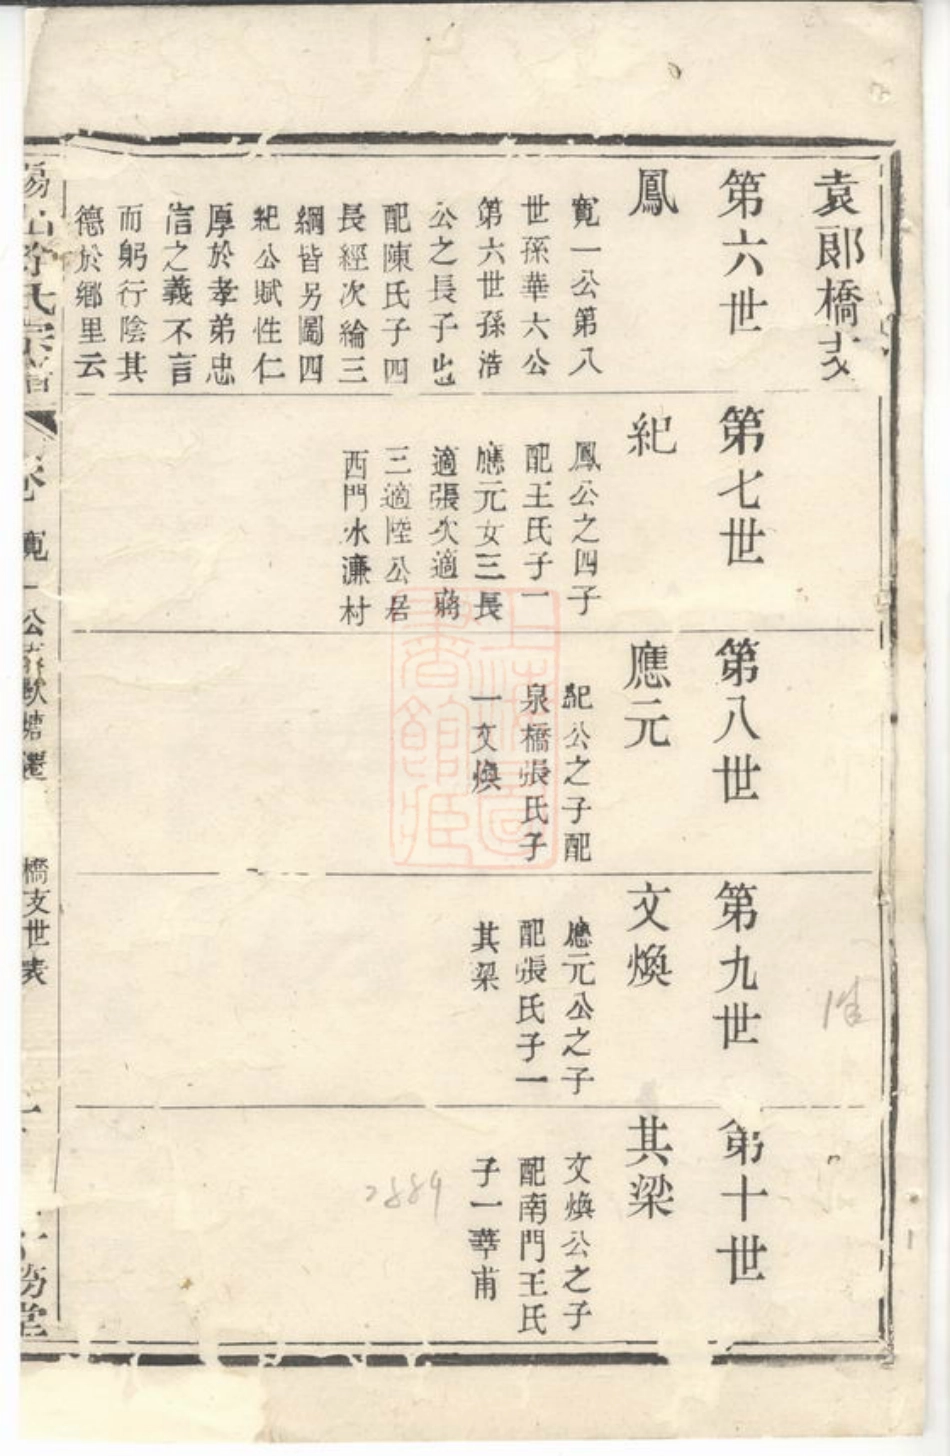 袁郎橋支
第六世
鳳
寬一公第八
世孫華六公
第六世孫浩
公之長子也
配陳氏子四
長經次綸三
綱皆另圖四
紀公賦性仁
厚於孝弟忠
信之義不言
而躬行陰其
德於鄉里云
第七世
紀
鳳公之四子
配王氏子一
應元女三長
適張次適蔣
三適陸公居
西門水濂村
第八世
應元
紀公之子配
泉橋張氏子
一文煥
第九世
文煥
應元公之子
配張氏子一
其梁
第十世
其梁
文煥公之子
配南門王氏
子一華甫
氏宗譜
寬一公
橋支世表
堂
上海圖書館藏
2889